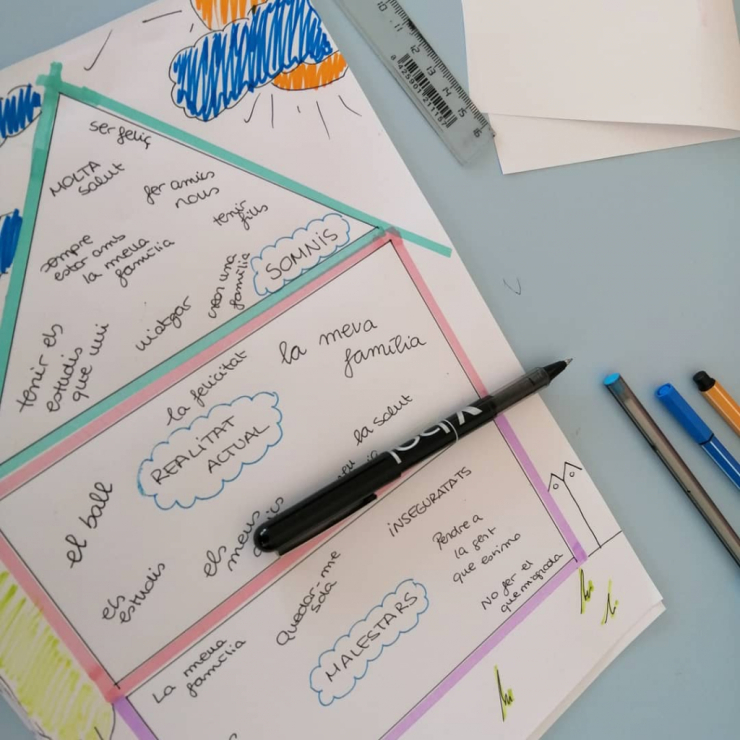 ser feliç
MOLTA
salut
fer amics
nous
tenir
fills
sempre
estar amb
la meva
família
crear una
família
SOMNIS
viatjar
tenir els
estudis
que vui
la felicitat
la meva
família
REALITAT
ACTUAL
la salut
el ball
els
estudis
els
meus
INSEGURATATS
Perdre a
la gent
que estimo
No fer el
que m'agrada
Quedar-me
sola
MALESTARS
La meva
família
10
11
12
13
14
15
8425901211157